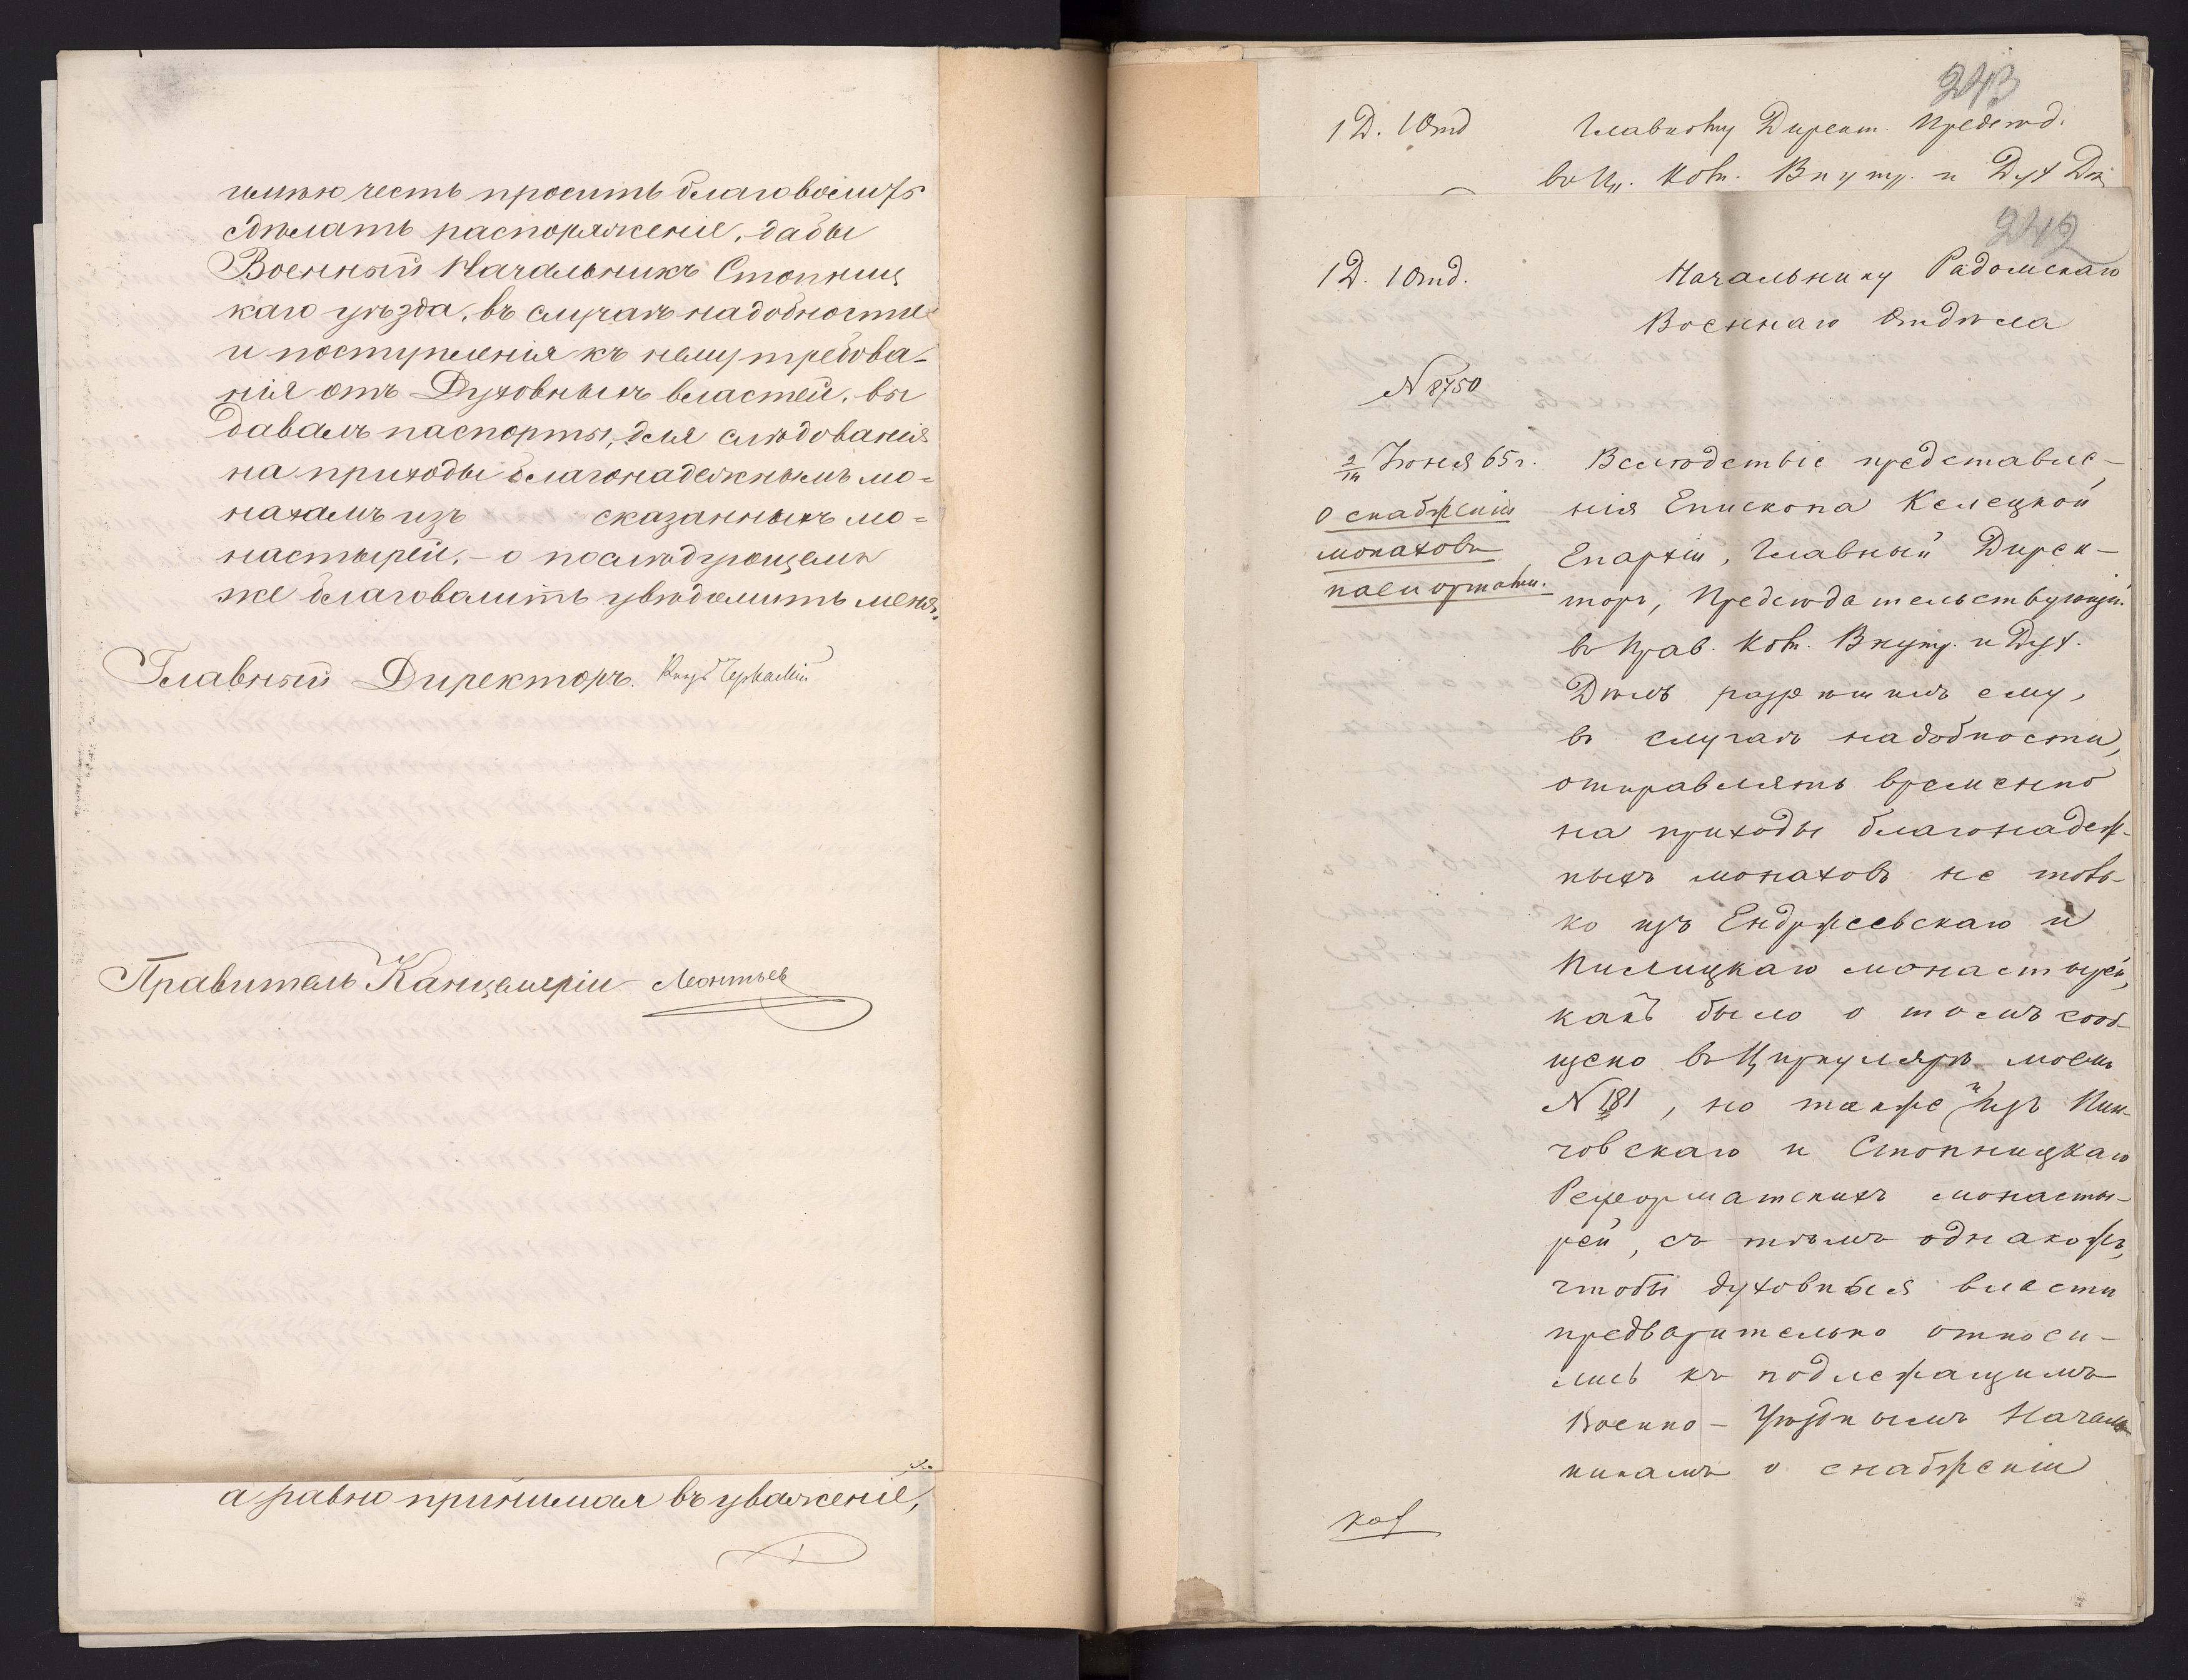 имѣю честь просить благоволить
сдѣлать распоряженіе, дабы
Военный Начальникъ Стопниц
каго уѣзда, въ случаѣ надобности
и поступленія къ нему требова-
нія отъ Духовныхъ властей, вы
давалъ паспорты, для слѣдованія
на приходы благонадежнымъ мо=
нахамъ изъ сказанныхъ мо=
настырей, - о послѣдующемъ
же благоволить увѣдомить меня.
Главный Директоръ. Князь Черкасскій
Правитель Канцеляріи Леонтьев
а равно принимая въ уваженіе,
243
1 Д. 1 Отд
Главному Директ. Предсѣд.
въ Пр. Ком. Внутр. и Дух Дѣ
242
1 Д. 1 Отд.
Начальнику Радомскаго
Военнаго Отдѣла
N 8750
2/14 Іюня 65 г.
О снабженіи
монаховъ
паспортами.
Вслѣдствіе представле-
нія Епископа Келецкой
Епархіи, Главный Дирек-
торъ, Предсѣдательствующій
въ Прав. Ком. Внутр. и Дух.
Дѣлъ разрѣшилъ ему,
въ случаѣ надобности,
отправлять временно
на приходы благонадеж-
ныхъ монаховъ не толь-
ко изъ Енджеевскаго и
Пилицкаго монастырей,
какъ было о томъ сооб-
щено въ Циркулярѣ моемъ
N 181, но также и изъ Пин-
човскаго и Стопницкаго
Реформатскихъ монасты-
рей, съ тѣмъ однакожъ,
чтобы духовныя власти
предварительно относи-
лись къ подлежащимъ
Военно-Уѣзднымъ Началь
никамъ о снабженіи